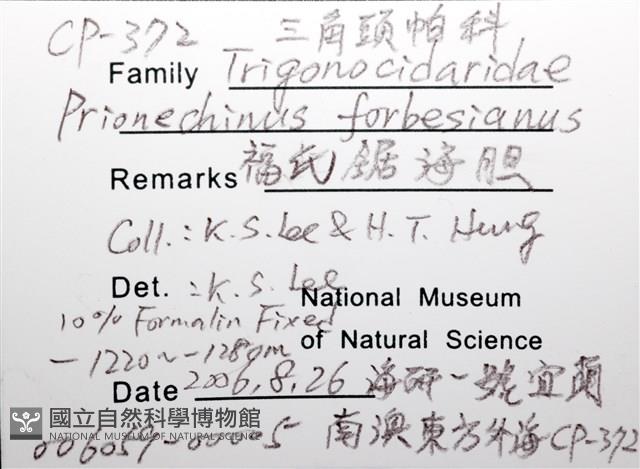 CP-372 三角頭帕科
Family Trigonocidaridae
Prionechinus forbesianus
Remarks 福氏鋸海胆
Coll.: K.S. Lee & H.T. Hung
Det. : K.S. Lee
National Museum
10% Formalin Fixed
of Natural Science
-1220~-1280m
Date 2006.8.26 海研一號宜蘭
國立自然科學博物館
NATIONAL MUSEUM OF NATURAL SCIENCE
南澳東方外海 CP-372